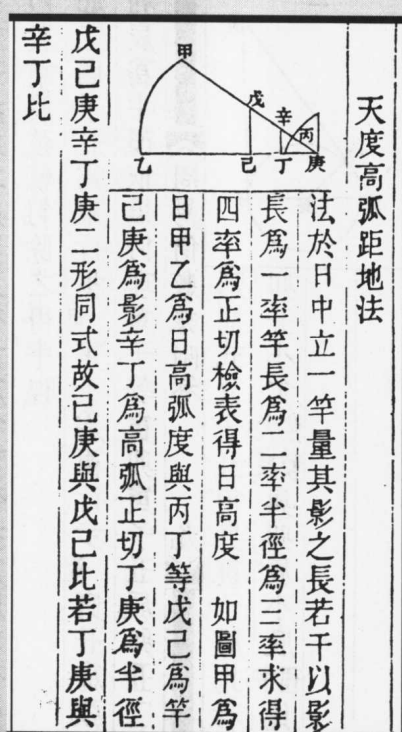 天度高弧距地法
法於日中立一竿量其影之長若干以影
長爲一率竿長爲二率半徑爲三率求得
四率爲正切檢表得日高度　如圖甲爲
日甲乙爲日高弧度與丙丁等戊己爲竿
己庚爲影辛丁爲高弧正切丁庚爲半徑
戊己庚辛丁庚二形同式故己庚與戊己比若丁庚與
辛丁比
甲
戊
辛
丙
乙
己
丁
庚